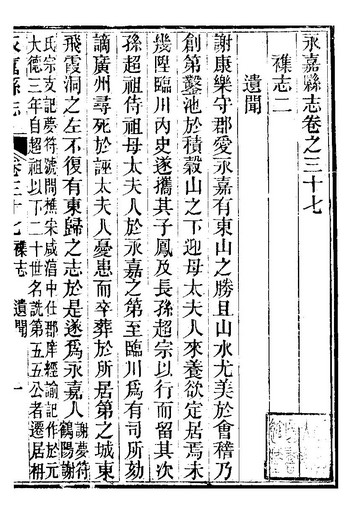 永嘉縣志卷之三十七
襍志二
遺聞
謝康樂守郡愛永嘉有東山之勝且山水尤美於會稽乃
創第鑿池於積穀山之下迎母太夫人來養欲定居焉未
幾陞臨川內史遂攜其子鳳及長孫超宗以行而留其次
孫超祖侍祖母太夫人於永嘉之第至臨川爲有司所劾
謫廣州尋死於誣太夫人憂患而卒葬於所居第之城東
飛霞洞之左不復有東歸之志於是遂爲永嘉人謝夢符
鶴陽謝
氏宗支記夢符號間樵宋咸湻中任郎庫經諭記作於元
大德三年自超祖以下二十世名詵第五五公者遷居枏
永嘉縣志
卷三十七 襍志 遺聞 一